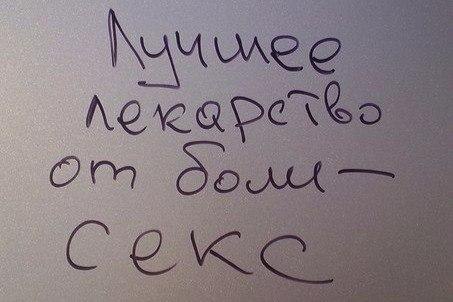 Лучшее
лекарство
от боли —
секс